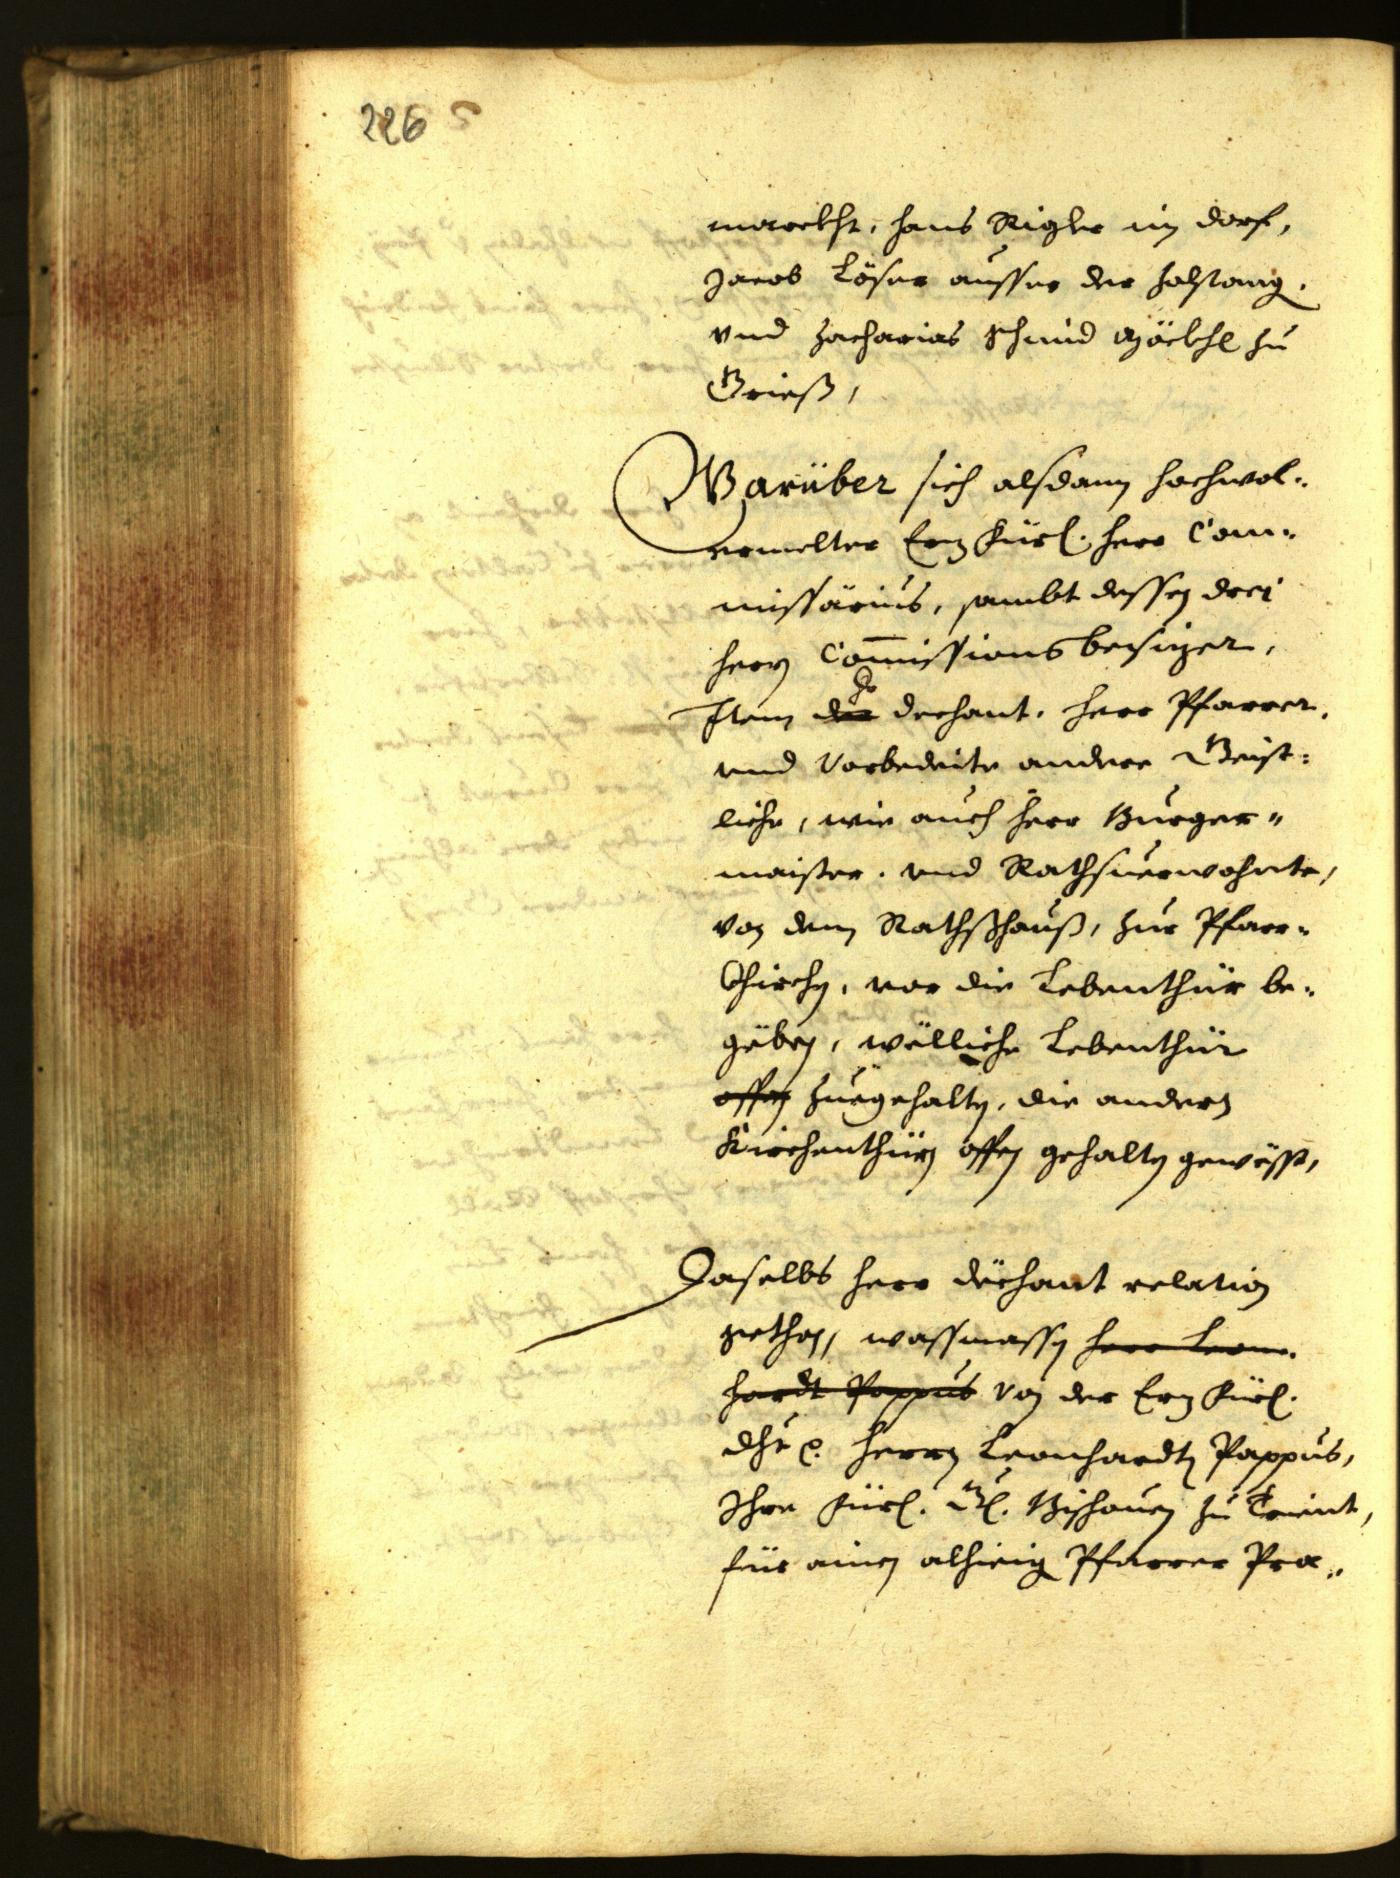 226
marckht, Hans Rigler im dorf,
Jacob Löser ausser der
vnd Zacharias Schmid zu
Grieß,
Warüber sich alsdann hochwol„
ermelter Erz Fürl. herr Com„
missärius, sambt dessen drei
hern Com̅issions beisizer,
Item der hr dechant, herr Pfarrer,
vnd Vorbedeite andere Geist„
liche, wie auch herr Burger„
maister, vnd Rathsuerwohnte,
von dem Rathßhauß, zur Pfarr„
Khirchen, vor die Lebenthür be„
geben, wölliche Lebenthür
offen zuegehalten, die andern
Kirchenthürn offen gehalten gewesst,
Daselbs herr dechant relation
gethon, wassmassen herr Leon„
hardt Pappus von der Erz Fürl.
dht p. Herrn Leonhardtn Pappus,
Ihre Fürl. G. Bischouen zu Trient,
für ainen alhieig Pfarrer Pre„